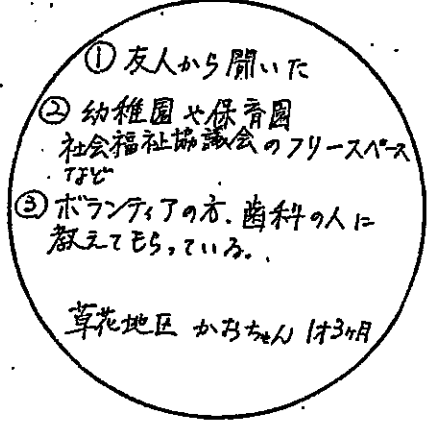 ① 友人から聞いた
② 幼稚園や保育園
社会福祉協議会のフリースペース
など
③ ボランティアの方、歯科の人に
教えてもらっている。
草花地区 かおちゃん 1才3ヶ月